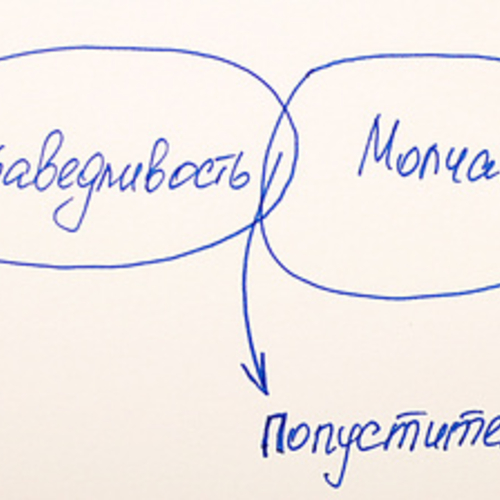 раведливость Молча
Попустите